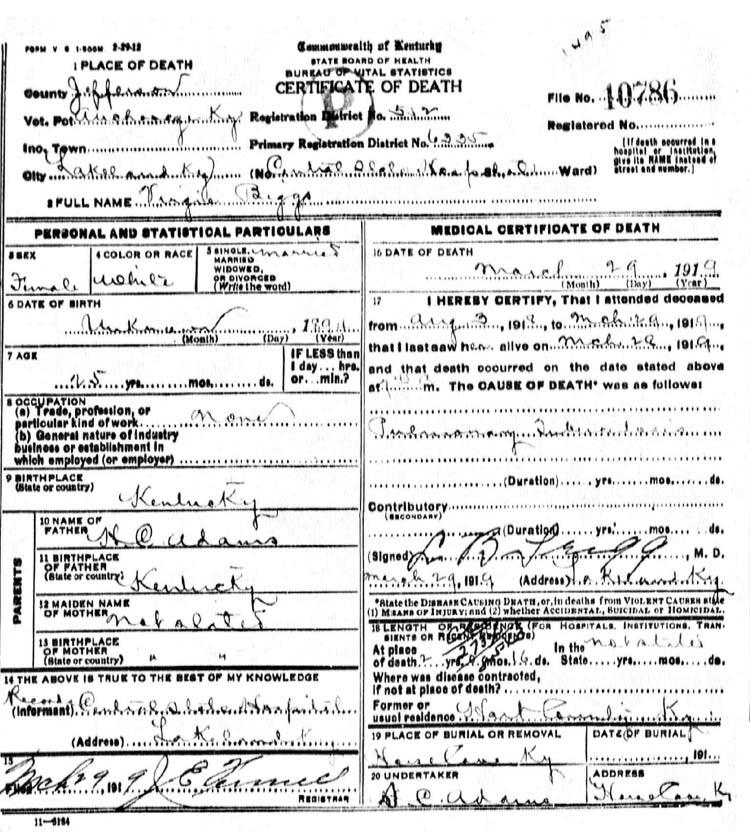 FORM V S 1-500M 2-29-12
1495
Commonwealth of Kentucky
STATE BOARD OF HEALTH
BUREAU OF VITAL STATISTICS
CERTIFICATE OF DEATH
P
1 PLACE OF DEATH
County Jefferson
Vot. Pct Anchorage Ky
Registration District No. 512
File No. 10786
Inc. Town
Primary Registration District No. 6335
Registered No.
City Lakeland Ky (No. Central State Hospital Ward)
[If death occurred in a hospital or institution, give its NAME instead of street and number.]
2 FULL NAME Virgie Biggs
PERSONAL AND STATISTICAL PARTICULARS
3 SEX
Female
4 COLOR OR RACE
White
5 SINGLE, MARRIED WIDOWED, OR DIVORCED (Write the word)
Married
6 DATE OF BIRTH
Unknown, 1894
(Month) (Day) (Year)
7 AGE
25 yrs. mos. ds.
IF LESS than
1 day... hrs.
or... min.?
8 OCCUPATION
(a) Trade, profession, or
particular kind of work None
(b) General nature of industry
business or establishment in
which employed (or employer)
9 BIRTHPLACE
(State or country)
Kentucky
PARENTS
10 NAME OF
FATHER
H C Adams
11 BIRTHPLACE
OF FATHER
(State or country)
Kentucky
12 MAIDEN NAME
OF MOTHER
Not stated
13 BIRTHPLACE
OF MOTHER
(State or country)
" "
14 THE ABOVE IS TRUE TO THE BEST OF MY KNOWLEDGE
Records
(Informant) Central State Hospital
(Address) Lakeland Ky
15
Filed Mch 29 1919 J E
REGISTRAR
11-3184
MEDICAL CERTIFICATE OF DEATH
16 DATE OF DEATH
March 29, 1919
(Month) (Day) (Year)
17 I HEREBY CERTIFY, That I attended deceased
from Aug 3, 1918, to Mch 29, 1919,
that I last saw her alive on Mch 28, 1919,
and that death occurred on the date stated above
at m. The CAUSE OF DEATH* was as follows:
Pulmonary Tuberculosis
(Duration) yrs. mos. ds.
Contributory
(SECONDARY)
(Duration) yrs. mos. ds.
(Signed) M. D.
March 29, 1919 (Address) Lakeland Ky.
*State the DISEASE CAUSING DEATH, or, in deaths from VIOLENT CAUSES state
(1) MEANS OF INJURY; and (2) whether ACCIDENTAL, SUICIDAL or HOMICIDAL.
18 LENGTH OF RESIDENCE (FOR HOSPITALS, INSTITUTIONS, TRANSIENTS OR RECENT RESIDENTS)
At place
of death yrs. mos. 16 ds.
In the
State yrs. mos. ds.
not stated
Where was disease contracted,
if not at place of death?
Former or
usual residence Hart County Ky
19 PLACE OF BURIAL OR REMOVAL
Horse Cave Ky
DATE OF BURIAL
, 191
20 UNDERTAKER
H C Adams
ADDRESS
Horse Cave K